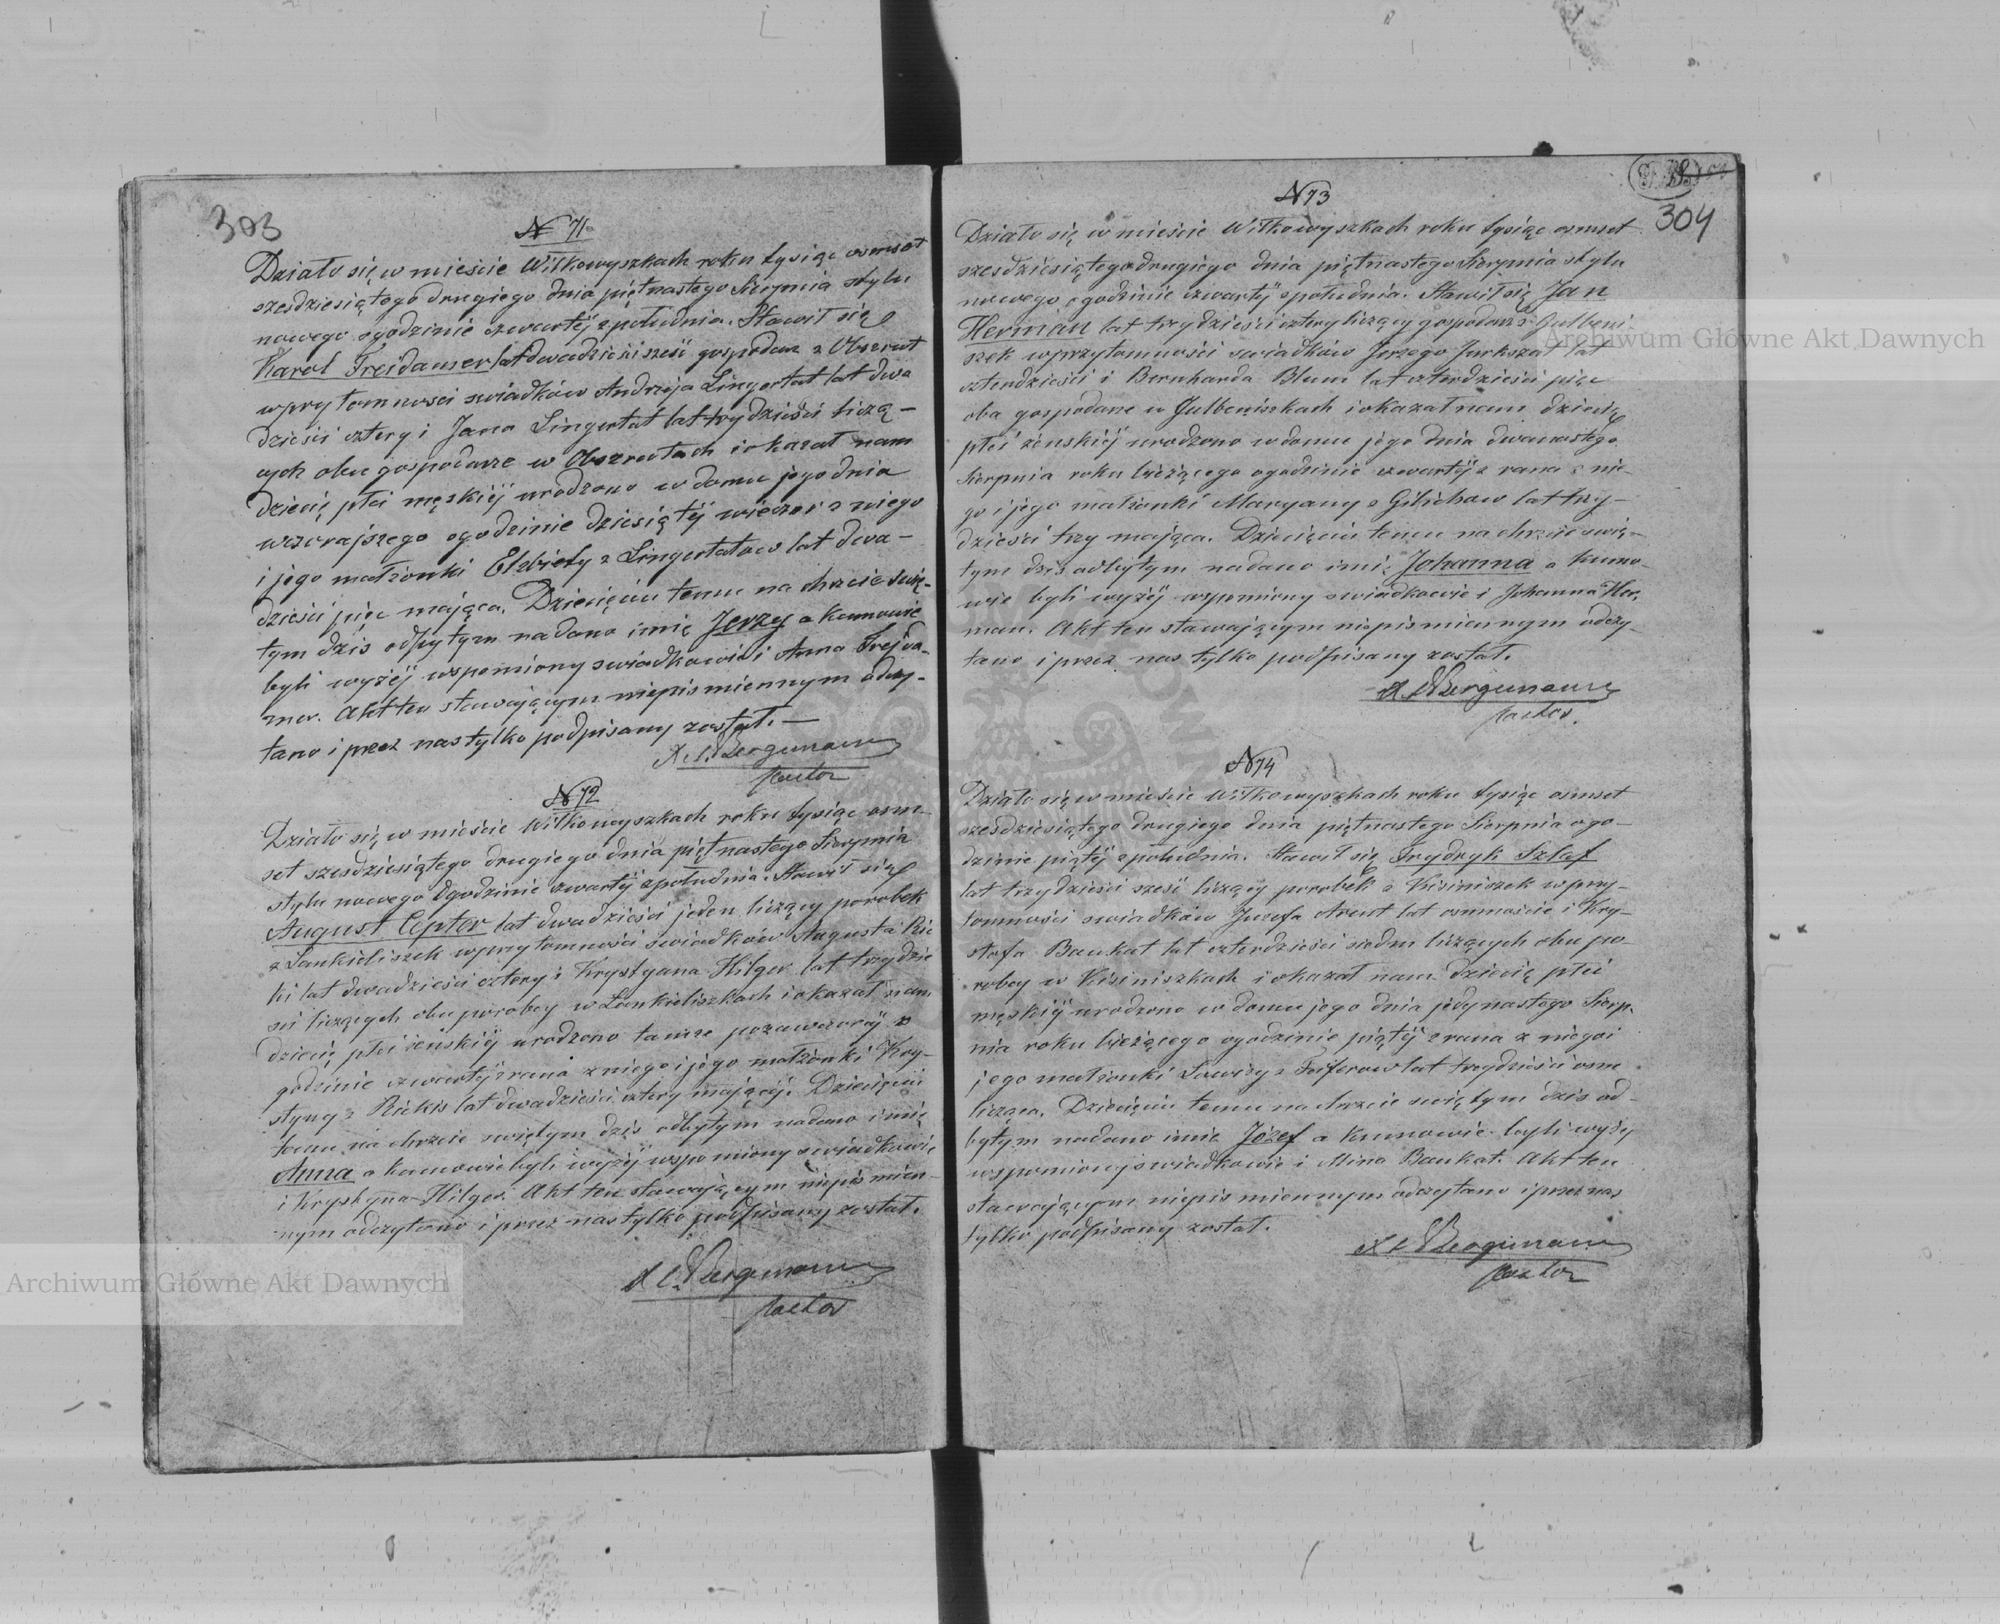 303
N 71
Działo się w mieście Wiłkowyszkach roku tysiąc osmset
szesdziesiątego drugiego dnia piętnastego Sierpnia stylu
nowego o godzinie czwartéj z południa. Stawił się
Karol Freidamer lat dwadzieścia sześć gospodarz z Obszrut
w przytomności swiadków Andrzeja Lingertat lat dwa
dzieści cztery i Jana Lingertat lat trzydzieści liczą-
cych obu gospodarze w Obszrutach i okazał nam
dziecię płci męskiéj urodzone w domu jego dnia
wczorajszego o godzinie dziesiątéj wieczor z niego
i jego małżonki Elżbiety z Lingertatow lat dwa-
dzieści pięć mająca. Dziecięciu temu na chrzcie świę-
tym dziś odbytym nadano imię Jerzy a kumowie
byli wyżéj wspomiony swiadkowie i Anna Frejda-
mer. Akt ten stawającym niepismiennym odczy-
tano i przez nas tylko podpisany został. —
Bergmann
Pastor
N 72
Działo się w mieście Wiłkowyszkach roku tysiąc osm-
set szesdziesiątego drugiego dnia piętnastego Sierpnia
stylu nowego o godzinie czwartéj z południa. Stawił się
August Cepter lat dwadzieścia jeden liczący parobek
z Lankieliszek w przytomności swiadków Augusta Ric
ki lat dwadzieścia cztery i Krystyana Hilger lat trzydzie
ści liczących obu parobcy w Lankieliszkach i okazał nam
dziecię płci żeńskiéj urodzone tamże pozawczoraj o
godzinie czwartéj z rana z niego i jego małżonki Kry-
styny z Rickis lat dwadzieścia cztery mającéj. Dziecięciu
temu na chrzcie swiętym dziś odbytym nadano imię
Anna a kumowie byli wyżéj wspomiony swiadkowie
i Krystyna Hilger. Akt ten stawającym niepismien-
nym odczytano i przez nas tylko podpisany został.
Bergmann
Pastor
304
N 73
Działo się w mieście Wiłkowyszkach roku tysiąc osmset
szesdziesiątego drugiego dnia piętnastego Sierpnia stylu
nowego o godzinie czwartéj z południa. Stawił się Jan
Herman lat trzydzieści cztery liczący gospodarz z Gulbeni-
szek w przytomności swiadków Jerzego Jurkszat lat
czterdzieści i Bernharda Blum lat czterdzieści pięć
oba gospodarze w Gulbeniszkach i okazał nam dziecię
płci żenskiéj urodzone w domu jego dnia dwunastego
Sierpnia roku bieżącego o godzinie czwartéj z rana z nie-
go i jego małżonki Maryany z Gilichow lat trzy-
dzieści trzy mająca. Dziecięciu temu na chrzcie swię-
tym dziś odbytym nadano imię Johanna a kumo-
wie byli wyżéj wspomiony swiadkowie i Johanna Her-
man. Akt ten stawającym niepismiennym odczy-
tano i przez nas tylko podpisany został.
Bergmann
Pastor.
N 74
Działo się w mieście Wiłkowyszkach roku tysiąc osmset
szesdziesiątego drugiego dnia piętnastego Sierpnia o go-
dzinie piątéj z południa. Stawił się Frydryk Szlaf
lat trzydzieści sześć liczący parobek z Kisiniszek w przy-
tomności swiadków Juzefa Arent lat osmnaście i Kry-
stofa Baukat lat czterdzieści siedm liczących obu pa-
robcy w Kisiniszkach i okazał nam dziecię płci
męskiéj urodzone w domu jego dnia jedynastego Sierp-
nia roku bieżącego o godzinie piątéj z rana z niego i
jego małżonki Lowizy z Feiferow lat trzydzieści osm
licząca. Dziecięciu temu na chrzcie swiętym dziś od-
bytym nadano imię Józef a kumowie byli wyżéj
wspomiony swiadkowie i Mina Baukat. Akt ten
stawającym niepismiennym odczytano i przez nas
tylko podpisany został.
Bergmann
Pastor
Archiwum Główne Akt Dawnych
Archiwum Główne Akt Dawnych